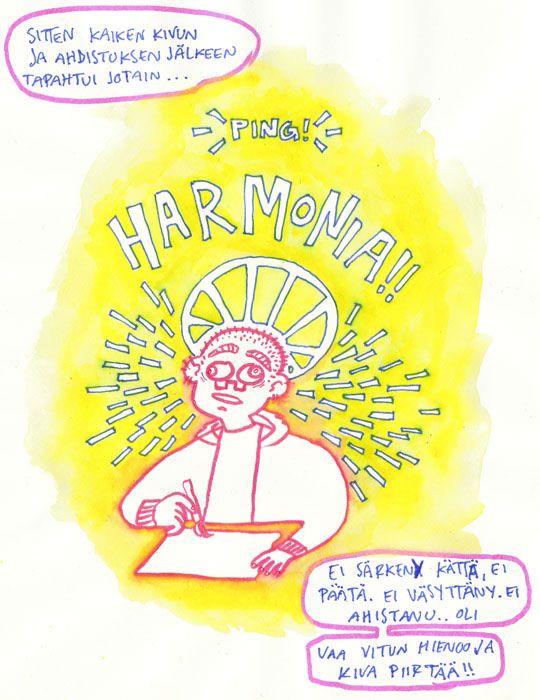 SITTEN KAIKEN KIVUN
JA AHDISTUKSEN JÄLKEEN
TAPAHTUI JOTAIN...
PING!
HARMONIA!!
EI SÄRKENY KÄTTÄ, EI
PÄÄTÄ. EI VÄSYTTÄNY. EI
AHISTANU.. OLI
VAA VITUN HIENOO JA
KIVA PIIRTÄÄ!!